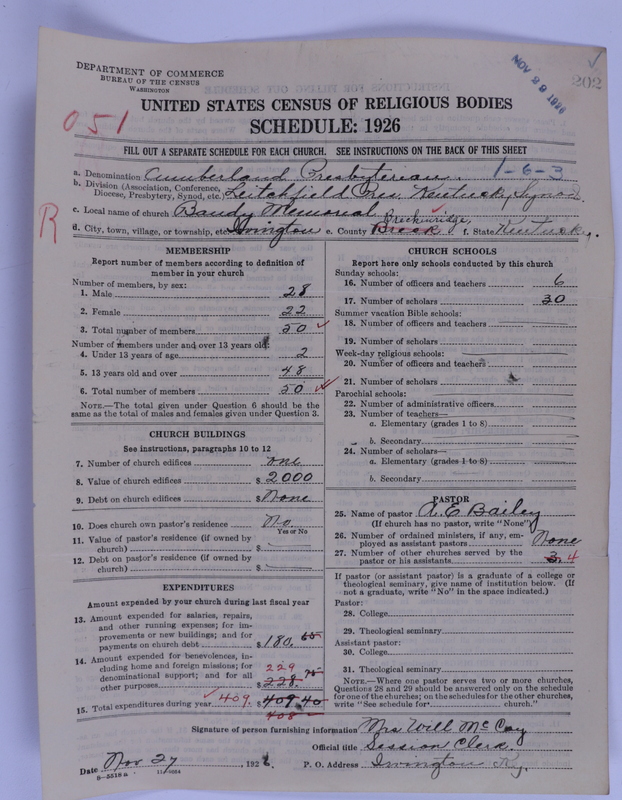 DEPARTMENT OF COMMERCE
BUREAU OF THE CENSUS
WASHINGTON
NOV 29 1926
202
UNITED STATES CENSUS OF RELIGIOUS BODIES
SCHEDULE: 1926
051
FILL OUT A SEPARATE SCHEDULE FOR EACH CHURCH. SEE INSTRUCTIONS ON THE BACK OF THIS SHEET
a. Denomination Cumberland Presbyterian. 1-6-3
b. Division (Association, Conference, Diocese, Presbytery, Synod, etc.) Leitchfield Pres. Kentucky Synod
c. Local name of church Bandy Memorial
R
d. City, town, village, or township, etc. Irvington e. County Breck Breckinridge, f. State Kentucky.
MEMBERSHIP
Report number of members according to definition of
member in your church
Number of members, by sex:
1. Male 28
2. Female 22
3. Total number of members 50
Number of members under and over 13 years old:
4. Under 13 years of age 2
5. 13 years old and over 48
6. Total number of members 50
NOTE.—The total given under Question 6 should be the
same as the total of males and females given under Question 3.
CHURCH BUILDINGS
See instructions, paragraphs 10 to 12
7. Number of church edifices one
8. Value of church edifices $ 2000
9. Debt on church edifices $ None
10. Does church own pastor's residence No
Yes or No
11. Value of pastor's residence (if owned by
church) $
12. Debt on pastor's residence (if owned by
church) $
EXPENDITURES
Amount expended by your church during last fiscal year
13. Amount expended for salaries, repairs,
and other running expenses; for im-
provements or new buildings; and for
payments on church debt $ 180.65
14. Amount expended for benevolences, in-
cluding home and foreign missions; for
denominational support; and for all
other purposes 229 $ 228.75
15. Total expenditures during year 409. $ 409.40
408
CHURCH SCHOOLS
Report here only schools conducted by this church
Sunday schools:
16. Number of officers and teachers 6
17. Number of scholars 30
Summer vacation Bible schools:
18. Number of officers and teachers
19. Number of scholars
Week-day religious schools:
20. Number of officers and teachers
21. Number of scholars
Parochial schools:
22. Number of administrative officers
23. Number of teachers—
a. Elementary (grades 1 to 8)
b. Secondary
24. Number of scholars—
a. Elementary (grades 1 to 8)
b. Secondary
PASTOR
25. Name of pastor A. E. Bailey
(If church has no pastor, write "None")
26. Number of ordained ministers, if any, em-
ployed as assistant pastors None
27. Number of other churches served by the
pastor or his assistants 3. 4
If pastor (or assistant pastor) is a graduate of a college or
theological seminary, give name of institution below. (If
not a graduate, write "No" in the space indicated.)
Pastor:
28. College
29. Theological seminary
Assistant pastor:
30. College
31. Theological seminary
NOTE.—Where one pastor serves two or more churches,
Questions 28 and 29 should be answered only on the schedule
for one of the churches; on the schedules for the other churches,
write "See schedule for church."
Signature of person furnishing information Mrs Will McCoy
Official title Session Clerk.
Date Nov 27, 1926. P. O. Address Irvington Ky.
8-5518 a 11-9064